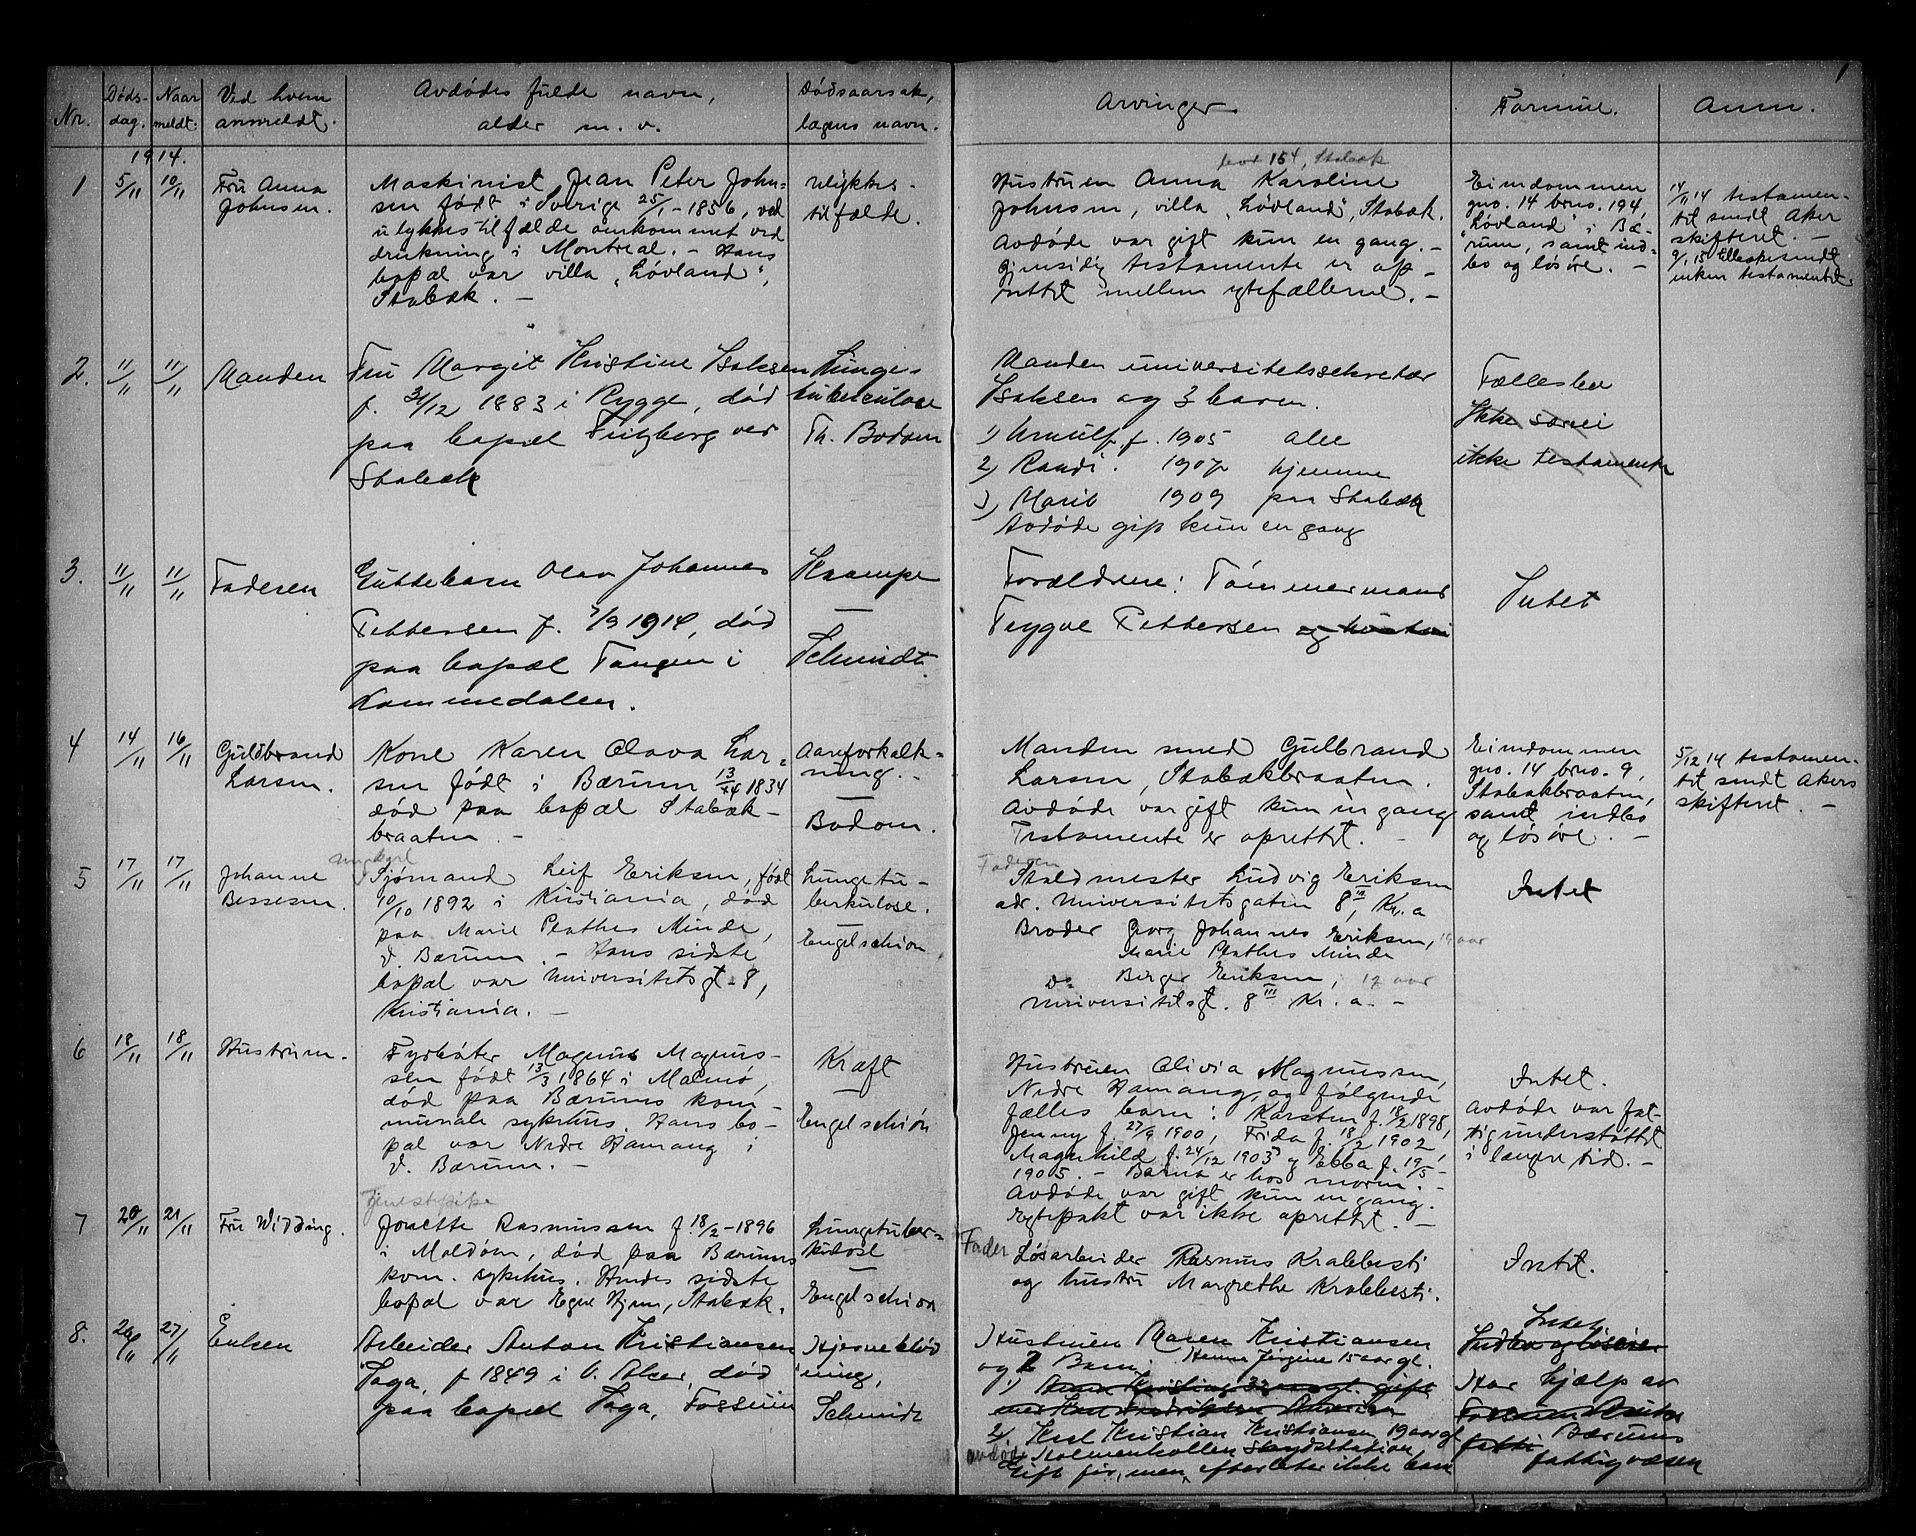 1
Nr.
Døds-
dag.
Naar
meldt.
Ved hvem
anmeldt.
Avdødes fulde navn,
alder m. v.
Dødsaarsak,
lægens navn.
Arvinger.
Formue.
Anm.
1914.
1
5/11
10/11
Fru Anna
Johnsen.
Maskinist Jean Peter John-
sen født i Sverige 25/1-1856, ved
ulykkestilfælde omkommet ved
drukning i Montreal. - Hans
bopæl var villa "Løvland",
Stabæk. -
Ulykkes-
tilfælde.
154, Stabæk
Hustruen Anna Karoline
Johnsen, villa "Løvland", Stabæk.
Avdøde var gift kun en gang. -
Gjensidig testamente er op-
rettet mellem egtefællerne. -
Eiendommen
gno. 14 brno. 194,
"Løvland" i Bæ-
rum, samt ind-
bo og løsøre. -
14/11 14 testamen-
tet sendt Aker
skifteret. -
9/1 15 tilbakesendt
enken testamentet
2.
11/11
11/11
Manden
Fru Margit Kristine Isaksen
f. 31/12 1883 i Rygge, død
paa bopæl Fritzborg ved
Stabæk
Lunge-
tuberculose
Th. Bodom
Manden universitetssekretær
Isaksen og 3 barn.
1) Arnulf f. 1905 alle
2) Randi. 1907 hjemme
3) Marit 1909 paa Stabæk
Avdøde gift kun en gang
Fællesbo
Ikke særei
ikke testamente
3.
11/11
11/11
Faderen
Guttebarn Olav Johannes
Pettersen f. 7/9 1914, død
paa bopæl Tangen i
Lommedalen.
Krampe
Schmidt.
Forældrene: Tømmermand
Trygve Pettersen og hustru
Intet
4
14/11
16/11
Guldbrand
Larsen.
Kone Karen Olava Lar-
sen født i Bærum 13/4 1834
død paa bopæl Stabæk-
braaten. -
Aareforkalk-
ning. -
Bodom.
Manden smed Gulbrand
Larsen, Stabækbraaten.
Avdøde var gift kun en gang
Testamente er oprettet. -
Eiendommen
gno. 14 brno. 9,
Stabækbraaten,
samt indbo
og løsøre. -
5/12 14 testamen-
tet sendt Akers
skifteret. -
5
17/11
17/11
Johanne
Bessesen.
ungkarl
Sjømand Leif Eriksen, født
10/10 1892 i Kristiania, død
paa Marie Plathes Minde,
V. Bærum. - Hans sidste
bopæl var Universitetsgt. 8,
Kristiania. -
Lungetu-
berkulose.
Engelschiøn
Faderen
Staldmester Ludvig Eriksen
adr. Universitetsgaten 8 III, Kr.a
Broder Georg Johannes Eriksen, 19 aar
Marie Plathes Minde
do Birger Eriksen, 17 aar
Universitetsgt. 8 III Kr.a. -
Intet
6
18/11
18/11
Hustruen.
Fyrbøter Magnus Magnus-
sen født 13/3 1864 i Malmø,
død paa Bærums kom-
munale sykehus. Hans bo-
pæl var Nedre Hamang i
V. Bærum. -
Kræft
Engelschiøn
Hustruen Olivia Magnussen,
Nedre Hamang, og følgende
fælles barn: Karsten f. 18/2 1898,
Jenny f. 27/9 1900, Frida f. 18/2 1902,
Magnhild f. 24/12 1903 og Ebba f. 19/5 -
1905. - Barna er hos moren. -
Avdøde var gift kun en gang.
Egtepakt var ikke oprettet. -
Intet.
Avdøde var fat-
tigunderstøttet
i længre tid. -
7
20/11
21/11
Fru Widding.
Tjenestepike
Jonette Rasmussen f. 18/2-1896
i Moldøen, død paa Bærums
kom. sykehus. Hendes sidste
bopæl var Egne Hjem, Stabæk.
Lungetuber-
kulose
Engelschiøn
Fader
Løsarbeider Rasmus Krabbesti
og hustru Margrethe Krabbesti.
Intet.
8.
26/11
27/11
Enken
Arbeider Anton Kristiansen
Taga, f 1849 i V. Aker, død
paa bopæl Taga, Fossum
Hjerneblød
ning,
Schmidt
Hustruen Maren Kristiansen
og 2 Barn.
1) Hanna Jørgine 15 aar gl.
2) Karl Kristian Kristiansen 19 aar gl
Holmenkollen
avdøde
Gift før, men efterlater ikke barn
Intet
Indbo og løsøre
Har hjælp av
Fossum Bruk
Bærums
fattigvæsen